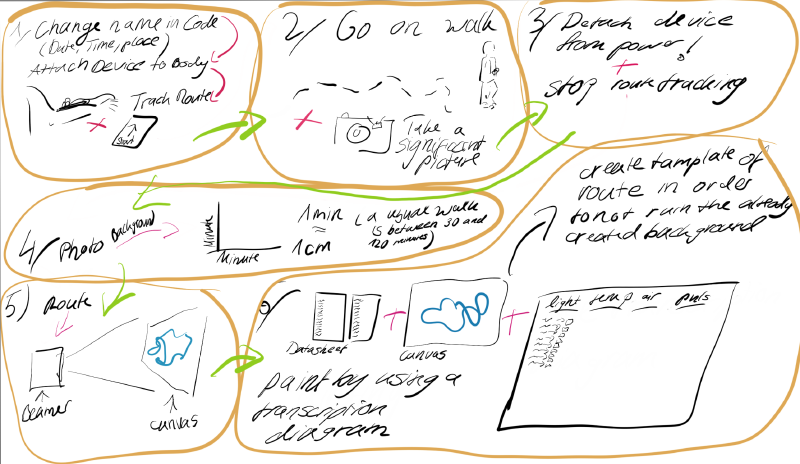 1/ Change name in Code
(Date, Time, place)
Attach Device to Body
Track Route
Start
2/ Go on walk
Take a
significant
picture
3/ Detach device
from power!
+
stop route tracking
4/ Photo Background
Minute
Minute
1 min
≈
1cm
(a usual walk
is between 30 and
120 minutes)
5) Route
Beamer
canvas
6/
Datasheet
+
canvas
+
light temp air puls
paint by using a
transcription
diagram
create tamplate of
route in order
to not ruin the already
created background